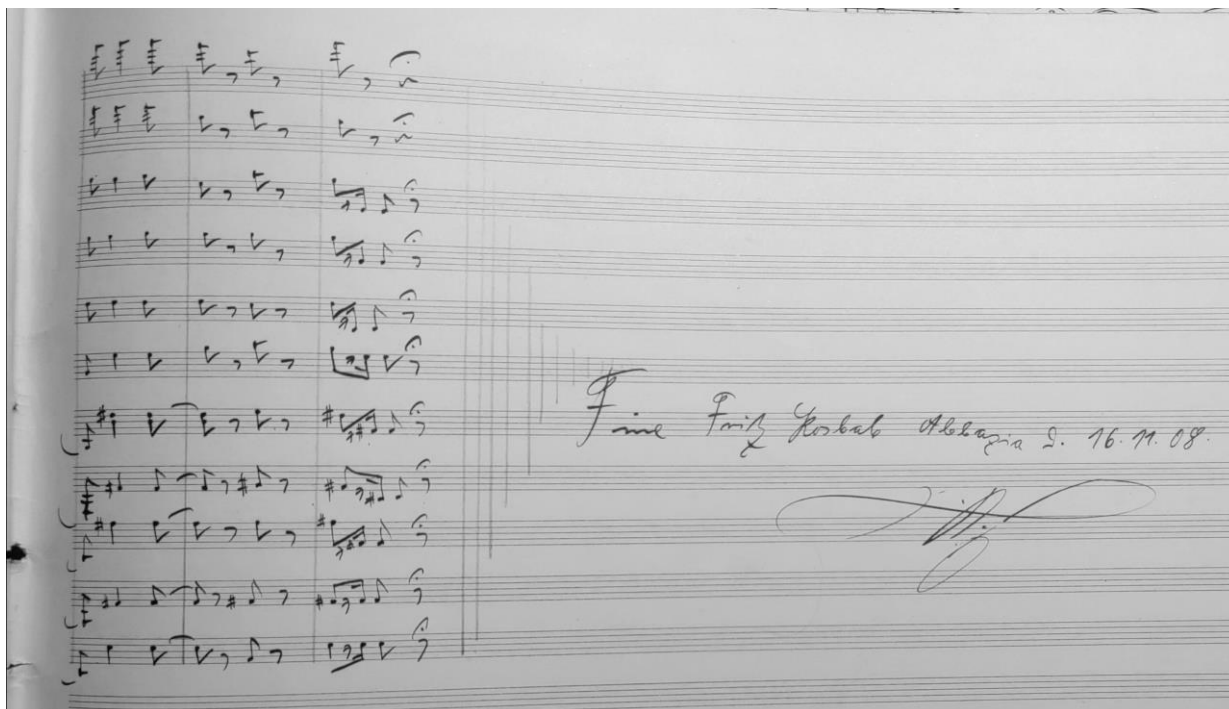 Fine Fritz Kosbab Abbazia d. 16. 11. 08.